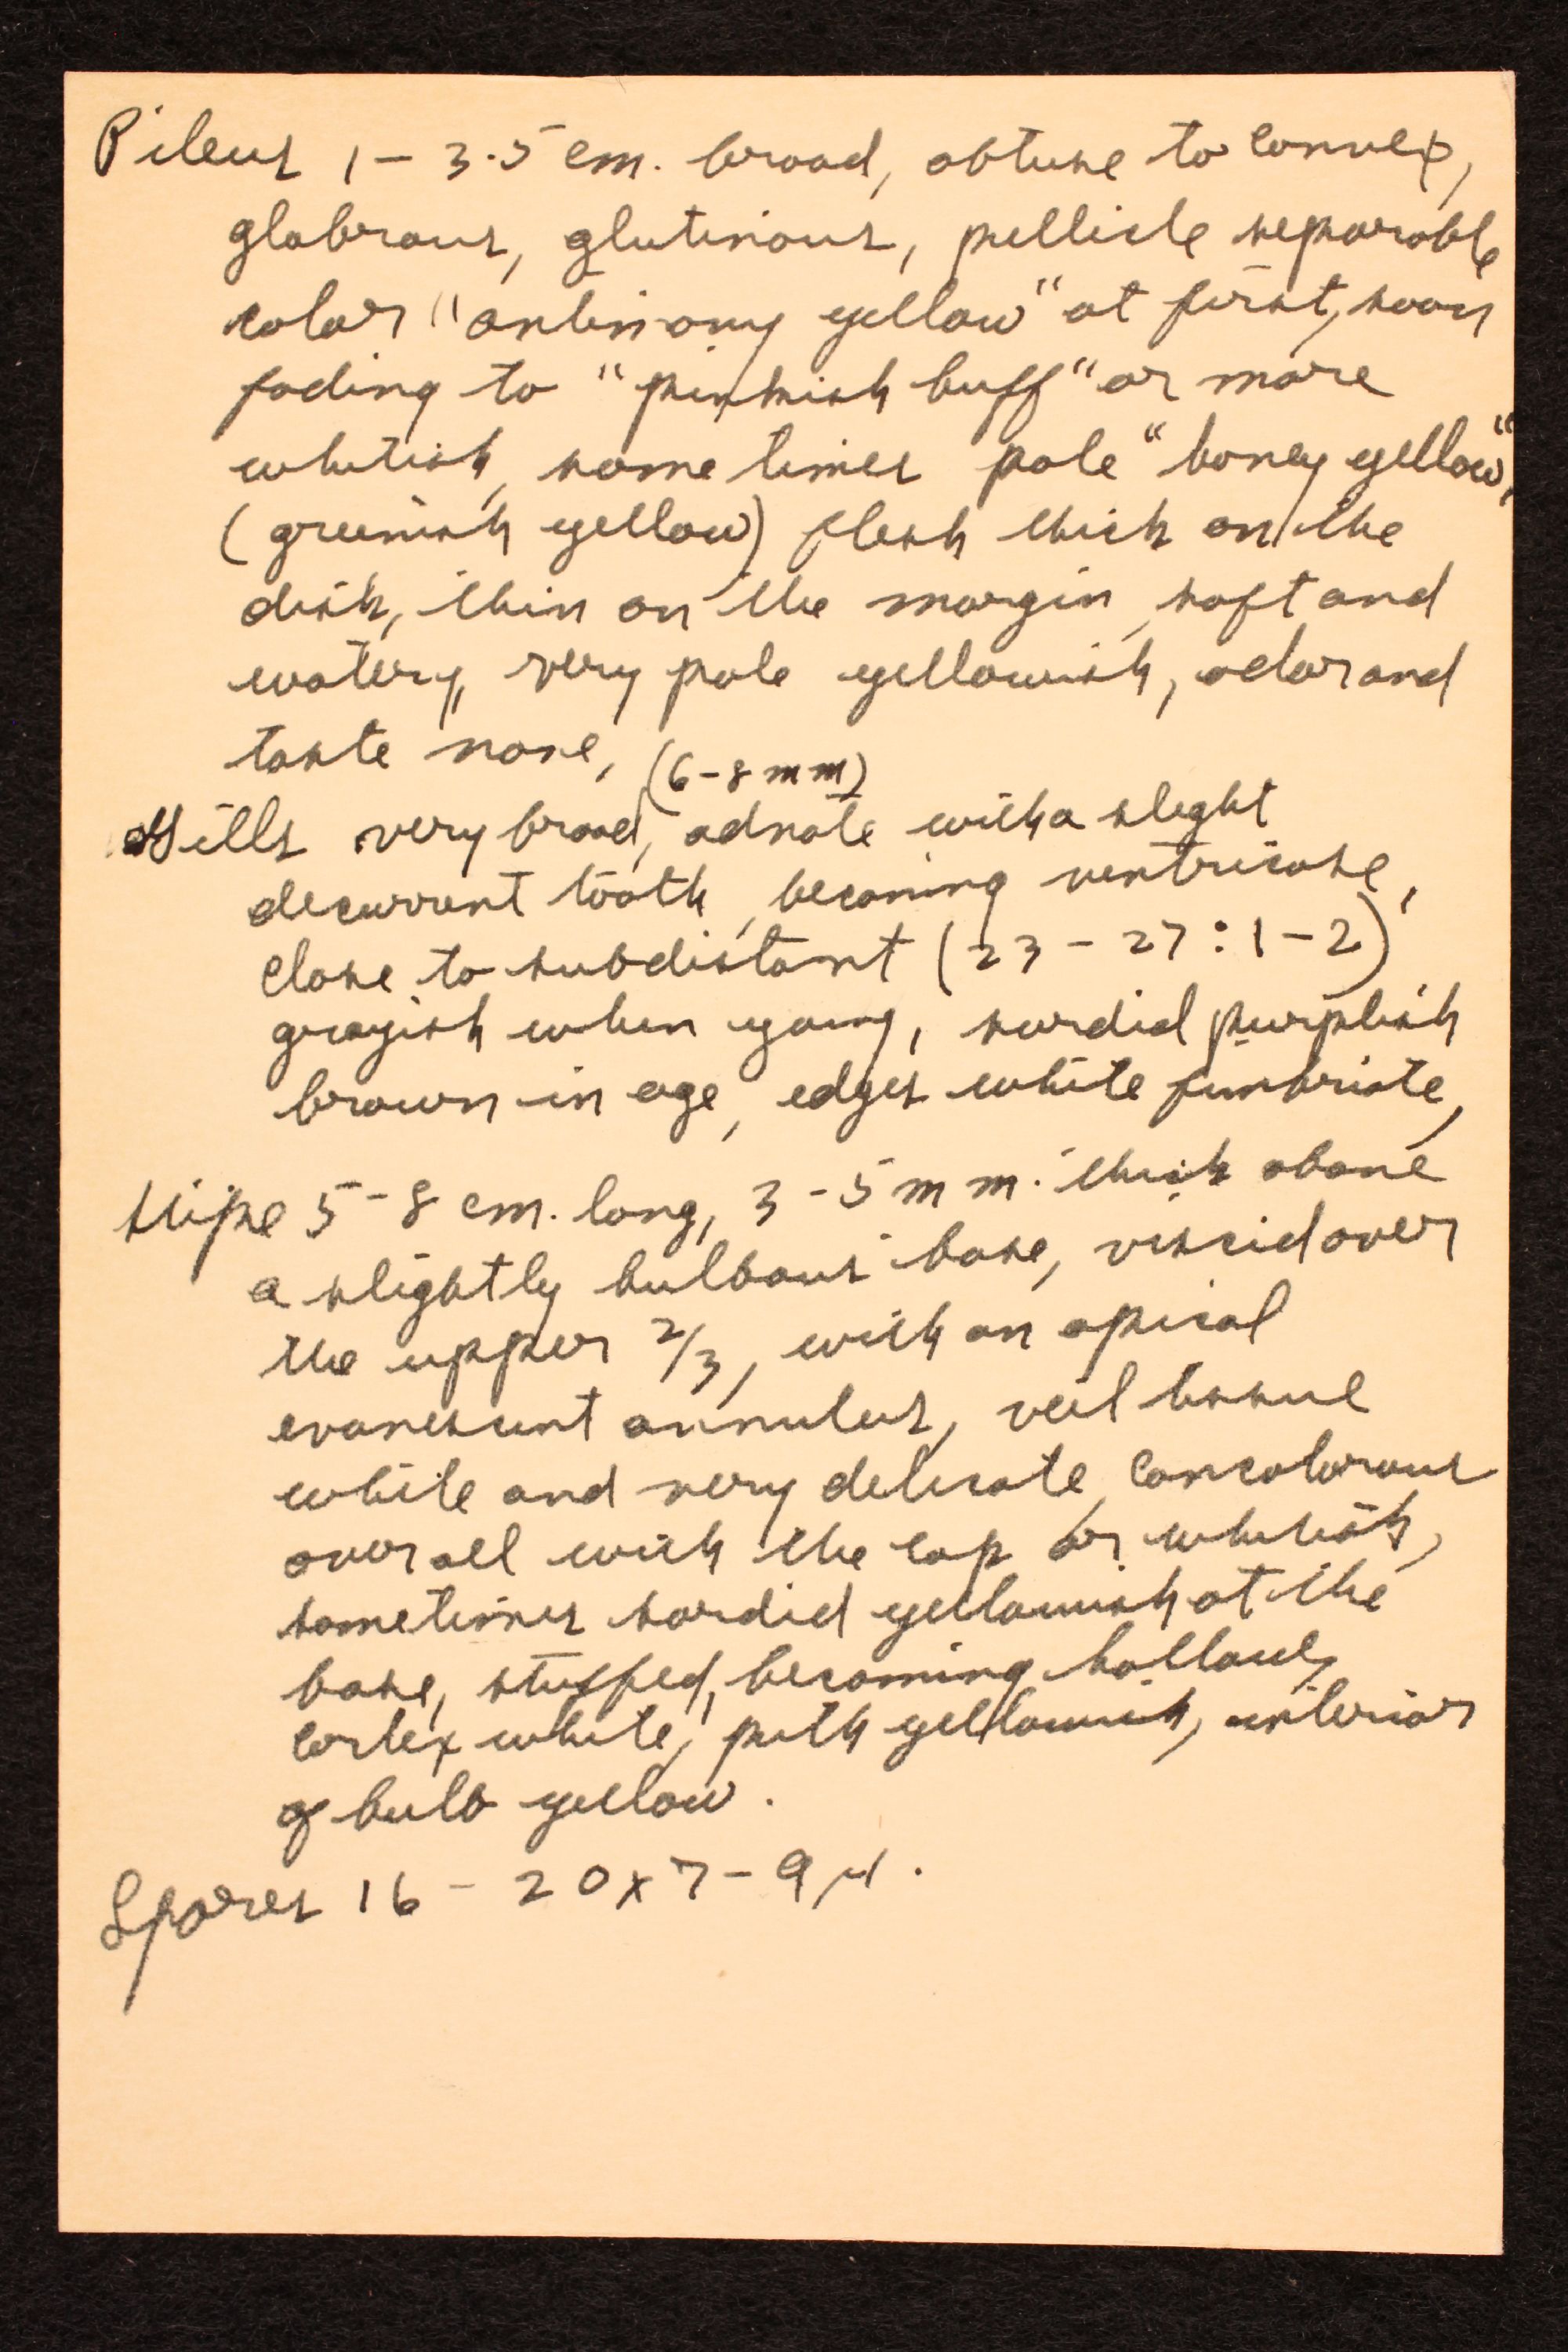 Pileus 1 – 3.5 cm. broad, obtuse to convex,
glabrous, glutinous, pellicle separable
color "antimony yellow" at first, soon
fading to "pinkish buff" or more
whitish, sometimes pale "honey yellow",
(greenish yellow) flesh thick on the
disk, thin on the margin, soft and
watery, very pale yellowish, odor and
taste none,
(6-8 mm)
Gills very broad, adnate with a slight
decurrent tooth, becoming ventricose,
close to subdistant (23 – 27 : 1 – 2)
grayish when young, sordid purplish
brown in age, edges white fimbriate,
Stipe 5 – 8 cm. long, 3 – 5 mm. thick above
a slightly bulbous base, viscid over
the upper 2/3, with an apical
evanescent annulus, veil tissue
white and very delicate, concolorous
over all with the cap or whitish,
sometimes sordid yellowish at the
base, stuffed, becoming hollow,
cortex white, pith yellowish, interior
of bulb yellow.
Spores 16 – 20 x 7 – 9 µ.